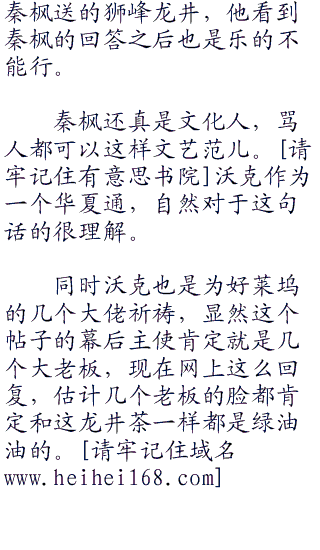 秦枫送的狮峰龙井，他看到
秦枫的回答之后也是乐的不
能行。
秦枫还真是文化人，骂
人都可以这样文艺范儿。[请
牢记住有意思书院]沃克作为
一个华夏通，自然对于这句
话的很理解。
同时沃克也是为好莱坞
的几个大佬祈祷，显然这个
帖子的幕后主使肯定就是几
个大老板，现在网上这么回
复，估计几个老板的脸都肯
定和这龙井茶一样都是绿油
油的。[请牢记住域名
www.heihei168.com]